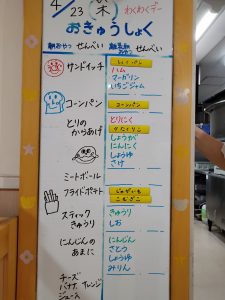 4/23 (木) わくわくデー
おきゅうしょく
朝おやつ せんべい
せんべい
サンドイッチ
しょくパン
ハム
マーガリン
いちごジャム
コーンパン
コーンパン
とりの
からあげ
とりにく
かたくりこ
しょうが
にんにく
しょうゆ
さけ
ミートボール
フライドポテト
じゃがいも
こむぎこ
スティック
きゅうり
きゅうり
しお
にんじんの
あまに
にんじん
さとう
しょうゆ
みりん
チーズ
バナナ、オレンジ
ジュース